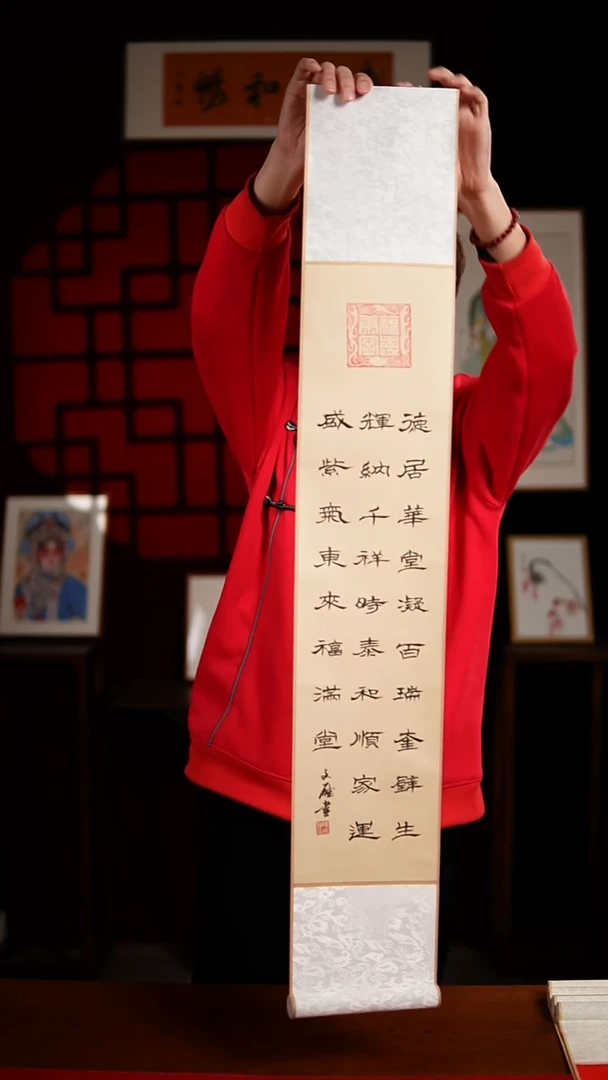 德居華堂凝百瑞奎壁生
輝納千祥時泰和順家運
盛紫氣東來福滿堂